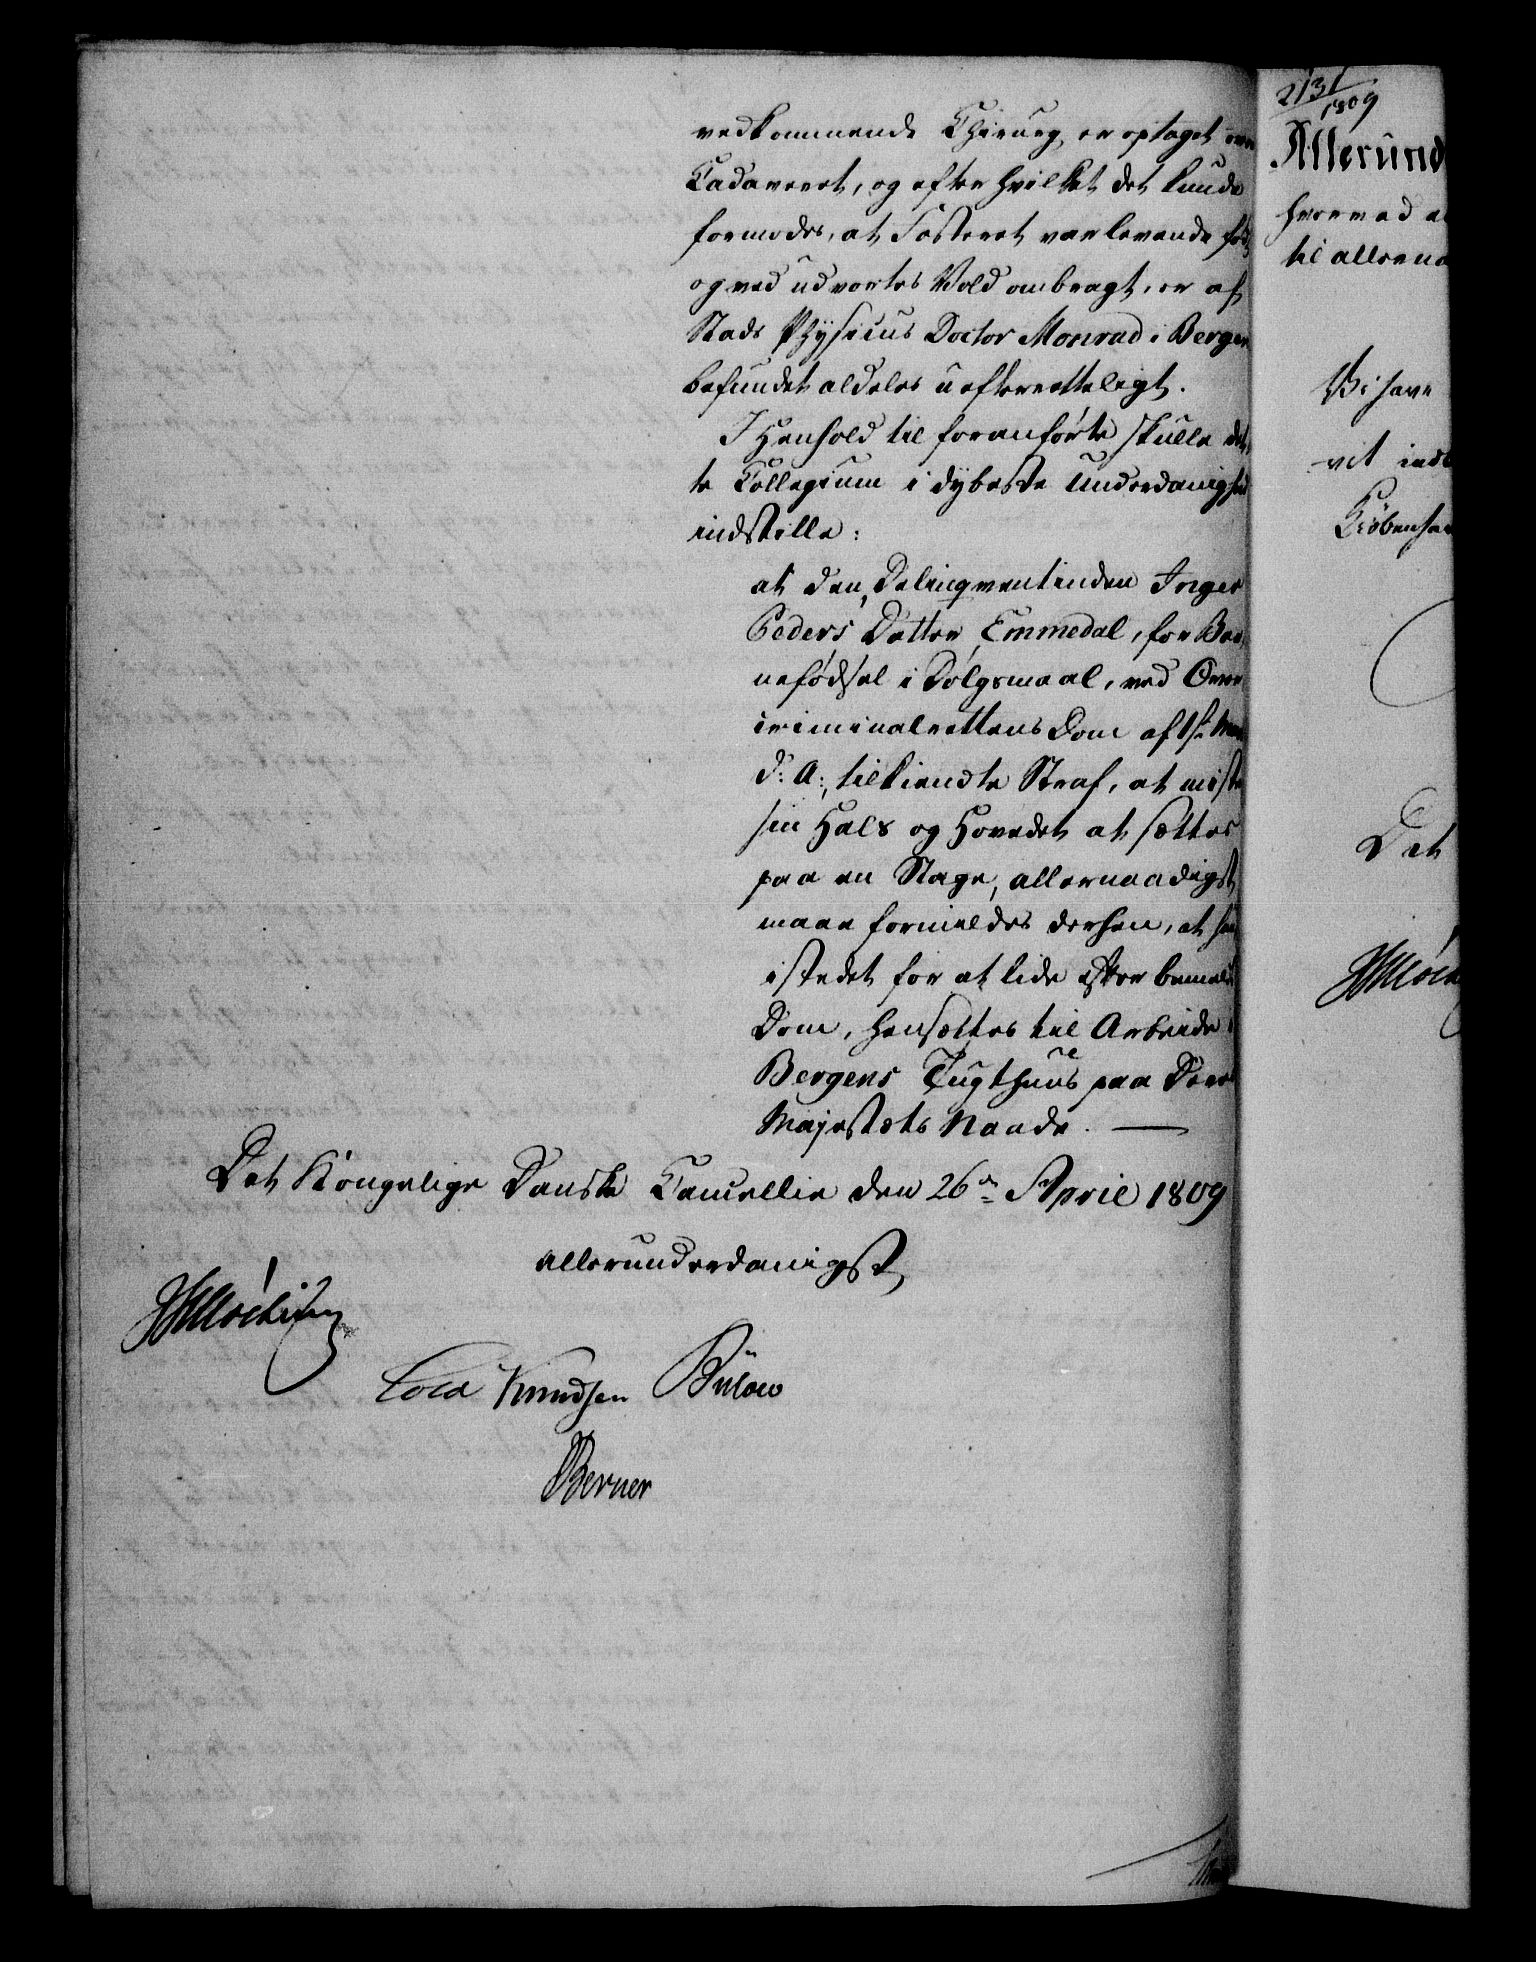 vedkommende Chirurg, er optaget over
Cadaveret, og efter hvilket det kunde
formodes, at Fosteret var levende fød
og ved udvortes Vold ombragt, er af
Stads Physicus Doctor Monrad i Bergen
befundet aldeles uefterretteligt.
I Henhold til foranførte skulle det-
te Collegium i dybeste Underdanighed
indstille:
at den, Delinqventinden Inger
Peders Datter Emmedal, for Bar-
nefødsel i Dølgsmaal, ved Over
criminalrettens Dom af 1ste
d: A:, tilkiendte Straf, at miste
sin Hals og Hovedet at sættes
paa en Stage, allernaadigst
maae formildes derhen, at hun
istedet for at lide efter bemeldte
Dom, hensættes til Arbeide i
Bergens Tugthuus paa Deres
Majestæts Naade. —
Det Kongelige Danske Cancellie den 26de April 1809
allerunderdanigst
Cold Knudsen Bülow
Berner
2131
1809
Allerund
hvorved
til allerna
Vi have
vet ind
Kiøbenha
Det